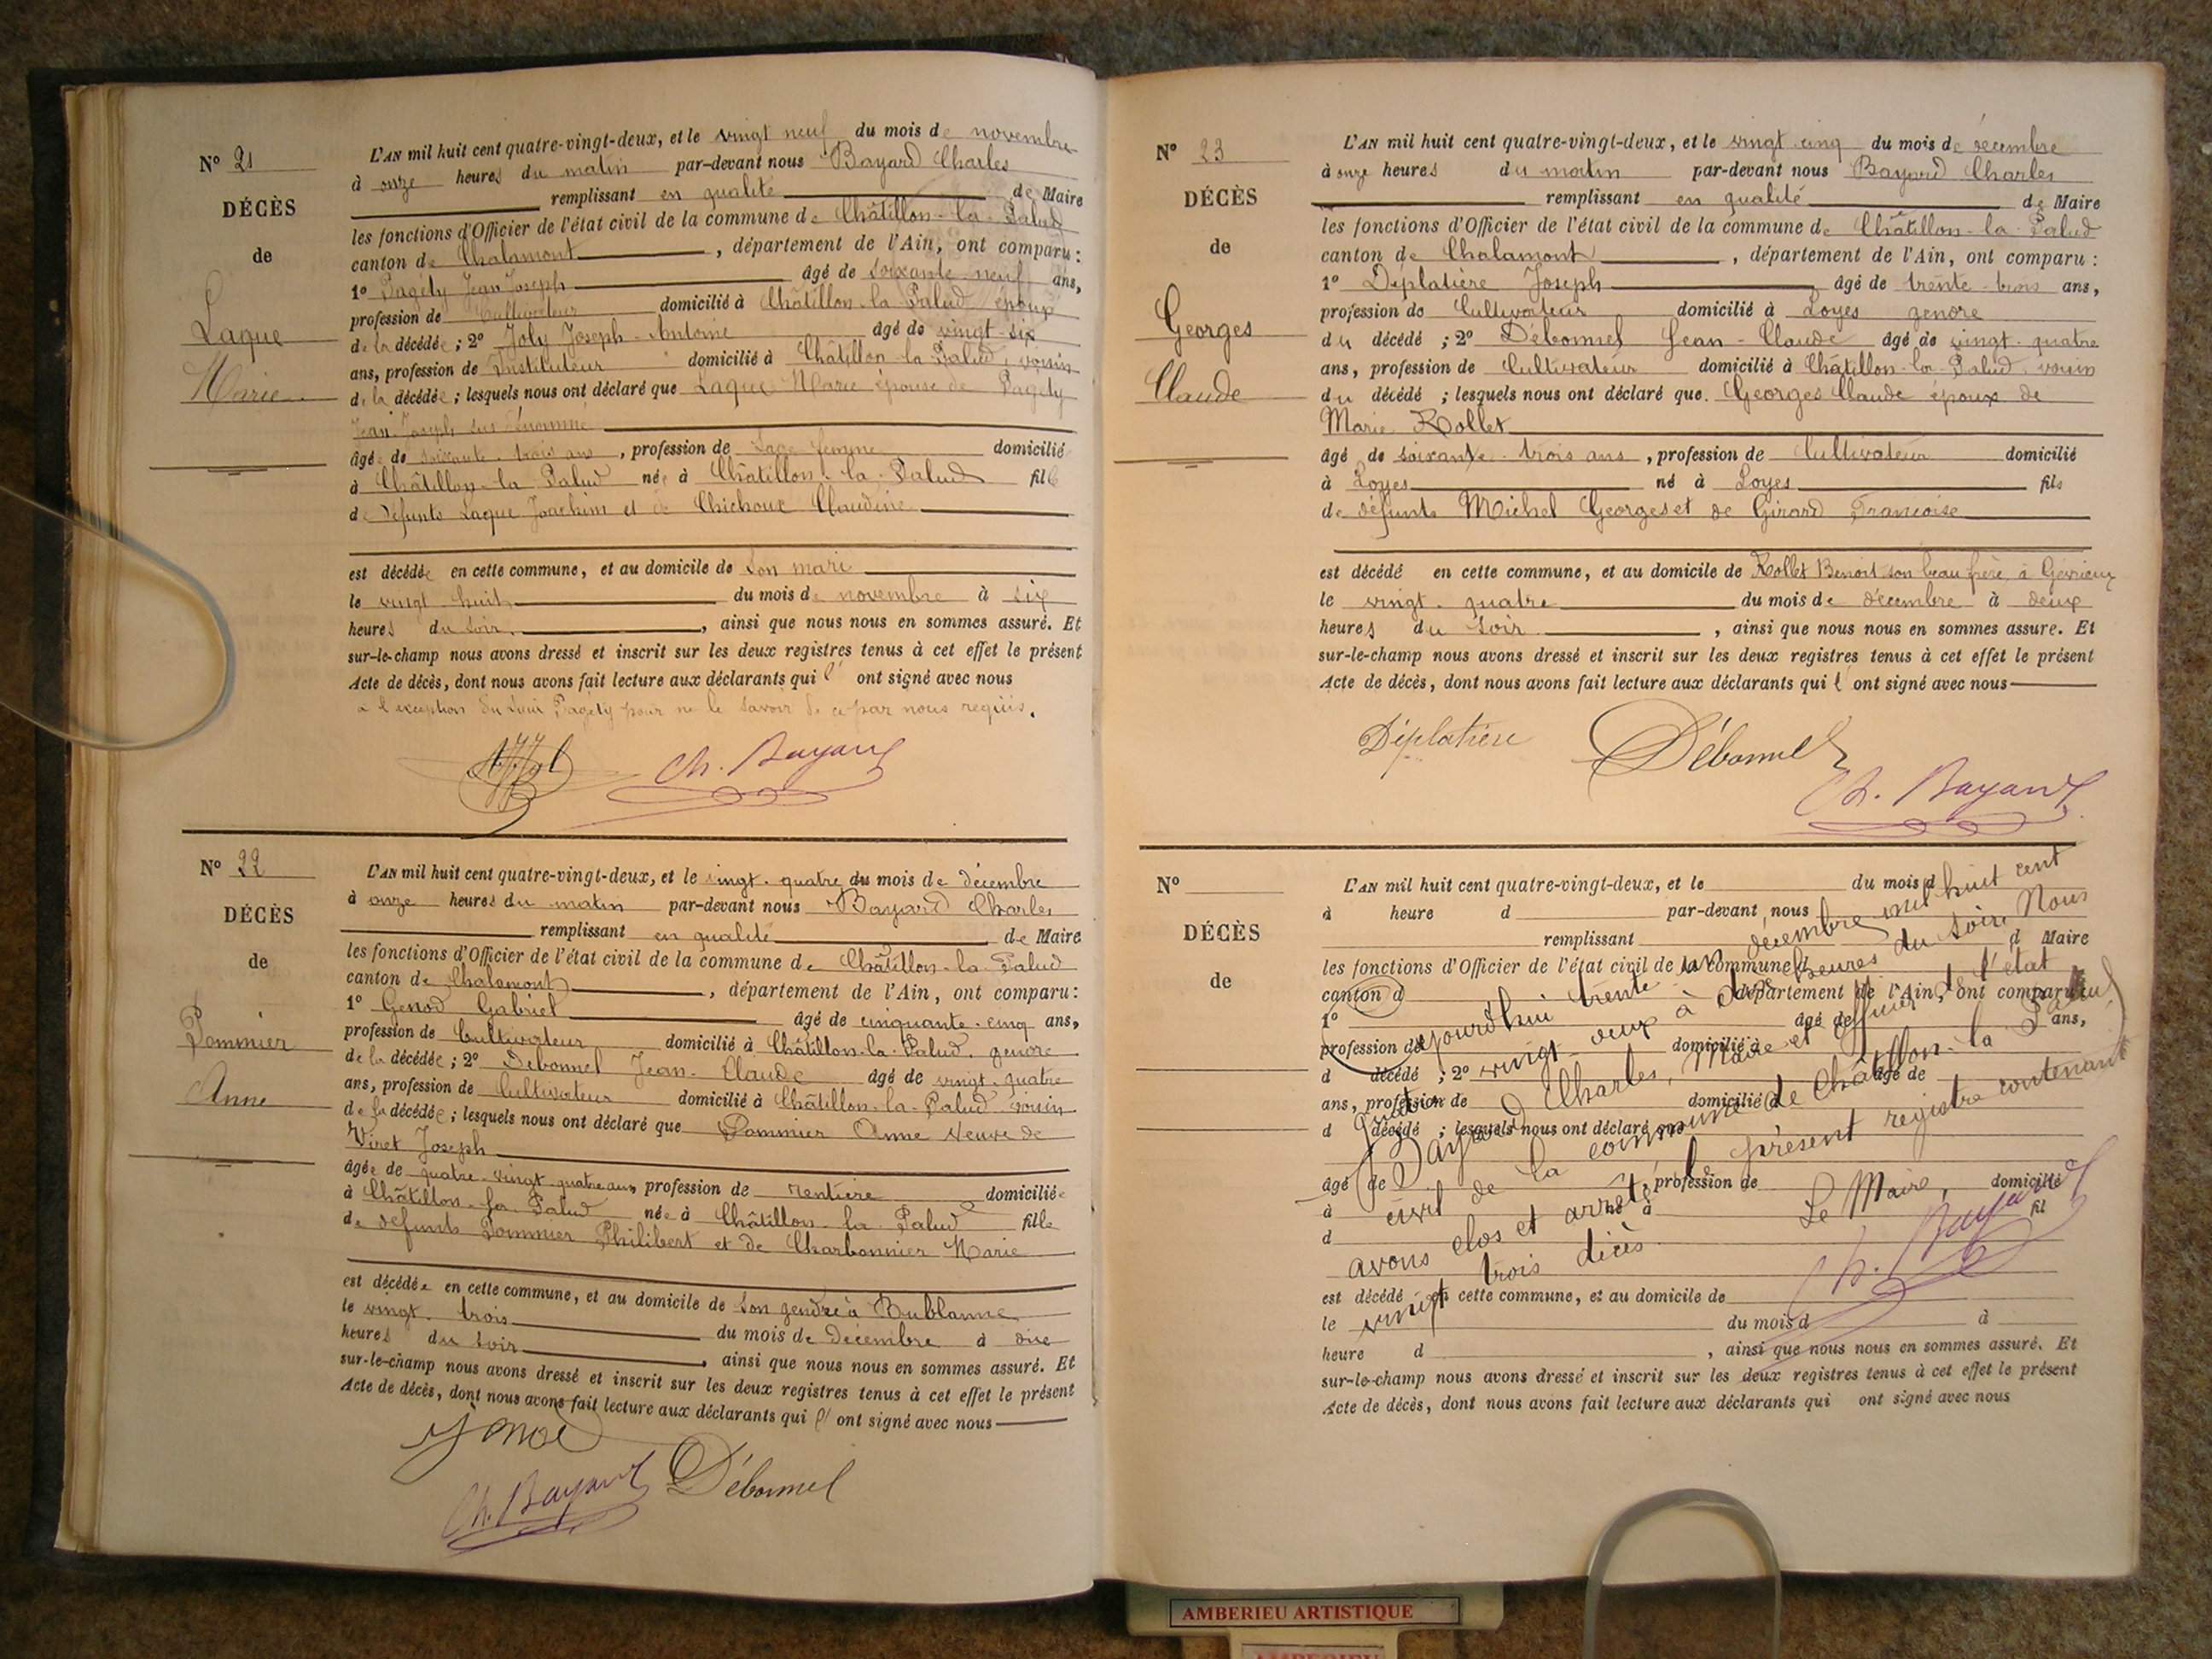 Nº 21
DÉCÈS
de
Laque
Marie
L'AN mil huit cent quatre-vingt-deux, et le vingt neuf du mois de novembre
à onze heures du matin par-devant nous Bayard Charles
remplissant en qualité de Maire
les fonctions d'Officier de l'état civil de la commune de Châtillon-la-Palud
canton de Chalamont, département de l'Ain, ont comparu :
1º Pagéty Jean Joseph âgé de soixante-neuf ans,
profession de Cultivateur domicilié à Châtillon-la-Palud époux
de la décédée ; 2º Joly Joseph-Antoine âgé de vingt-six
ans, profession de Instituteur domicilié à Châtillon-la-Palud, voisin
de la décédée ; lesquels nous ont déclaré que Laque Marie épouse de Pagéty
Jean-Joseph sus énommé
âgée de soixante-trois ans, profession de Sage femme domicilié
à Châtillon-la-Palud née à Châtillon-la-Palud fille
de défunts Laque Joachim et de Chichoux Claudine
est décédée en cette commune, et au domicile de son mari
le vingt-huit du mois de novembre à six
heures du soir, ainsi que nous nous en sommes assuré. Et
sur-le-champ nous avons dressé et inscrit sur les deux registres tenus à cet effet le présent
Acte de décès, dont nous avons fait lecture aux déclarants qui l' ont signé avec nous
à l'exception du sieur Pagéty pour ne le savoir de ce par nous requis.
Ch. Bayard
Nº 22
DÉCÈS
de
Pommier
Anne
L'AN mil huit cent quatre-vingt-deux, et le vingt-quatre du mois de décembre
à onze heures du matin par-devant nous Bayard Charles
remplissant en qualité de Maire
les fonctions d'Officier de l'état civil de la commune de Châtillon-la-Palud
canton de Chalamont, département de l'Ain, ont comparu :
1º Genod Gabriel âgé de cinquante-cinq ans,
profession de Cultivateur domicilié à Châtillon-la-Palud, gendre
de la décédée ; 2º Débonnel Jean-Claude âgé de vingt-quatre
ans, profession de Cultivateur domicilié à Châtillon-la-Palud voisin
de la décédée ; lesquels nous ont déclaré que Pommier Anne veuve de
Viret Joseph
âgée de quatre-vingt-quatre ans, profession de rentière domiciliée
à Châtillon-la-Palud née à Châtillon-la-Palud fille
de défunts Pommier Philibert et de Charbonnier Marie
est décédée en cette commune, et au domicile de son gendre à Bublanne
le vingt-trois du mois de décembre à onze
heures du soir, ainsi que nous nous en sommes assuré. Et
sur-le-champ nous avons dressé et inscrit sur les deux registres tenus à cet effet le présent
Acte de décès, dont nous avons fait lecture aux déclarants qui l' ont signé avec nous
Genod
Ch. Bayard Débonnel
Nº 23
DÉCÈS
de
Georges
Claude
L'AN mil huit cent quatre-vingt-deux, et le vingt-cinq du mois de décembre
à onze heures du matin par-devant nous Bayard Charles
remplissant en qualité de Maire
les fonctions d'Officier de l'état civil de la commune de Châtillon-la-Palud
canton de Chalamont, département de l'Ain, ont comparu :
1º Déplatière Joseph âgé de trente-trois ans,
profession de Cultivateur domicilié à Loyes gendre
du décédé ; 2º Débonnel Jean-Claude âgé de vingt-quatre
ans, profession de Cultivateur domicilié à Châtillon-la-Palud, voisin
du décédé ; lesquels nous ont déclaré que Georges Claude époux de
Marie Rollet
âgé de soixante-trois ans, profession de Cultivateur domicilié
à Loyes né à Loyes fils
de défunts Michel Georges et de Girard Françoise
est décédé en cette commune, et au domicile de Rollet Benoit son beau frère à Gévrieux
le vingt-quatre du mois de décembre à deux
heures du soir, ainsi que nous nous en sommes assuré. Et
sur-le-champ nous avons dressé et inscrit sur les deux registres tenus à cet effet le présent
Acte de décès, dont nous avons fait lecture aux déclarants qui l' ont signé avec nous
Déplatière Débonnel
Ch. Bayard
Nº
DÉCÈS
de
L'AN mil huit cent quatre-vingt-deux, et le du mois d
à heure d par-devant nous
remplissant d Maire
les fonctions d'Officier de l'état civil de la commune d
canton d département de l'Ain, ont comparu :
1º âgé de ans,
profession de domicilié à
d décédé ; 2º âgé de
ans, profession de domicilié à
d décédé ; lesquels nous ont déclaré que
âgé de , profession de domicilié
à né à fil
d
est décédé en cette commune, et au domicile de
le du mois d à
heure d , ainsi que nous nous en sommes assuré. Et
sur-le-champ nous avons dressé et inscrit sur les deux registres tenus à cet effet le présent
Acte de décès, dont nous avons fait lecture aux déclarants qui ont signé avec nous
Aujourd'hui trente-un décembre mil huit cent
quatre vingt-deux à heures du soir Nous
Bayard Charles, Maire et officier de l'état
civil de la commune de Châtillon-la-Palud
avons clos et arrêté le présent registre contenant
vingt trois décès.
Le Maire,
Ch. Bayard
AMBERIEU ARTISTIQUE
AMBERIEU